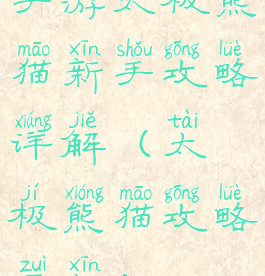 手游太极熊
māo xīn shǒu gōng lüè
猫新手攻略
xiáng jiě tài
详解（太
jí xióng māo gōng lüè
极熊猫攻略
zuì xīn